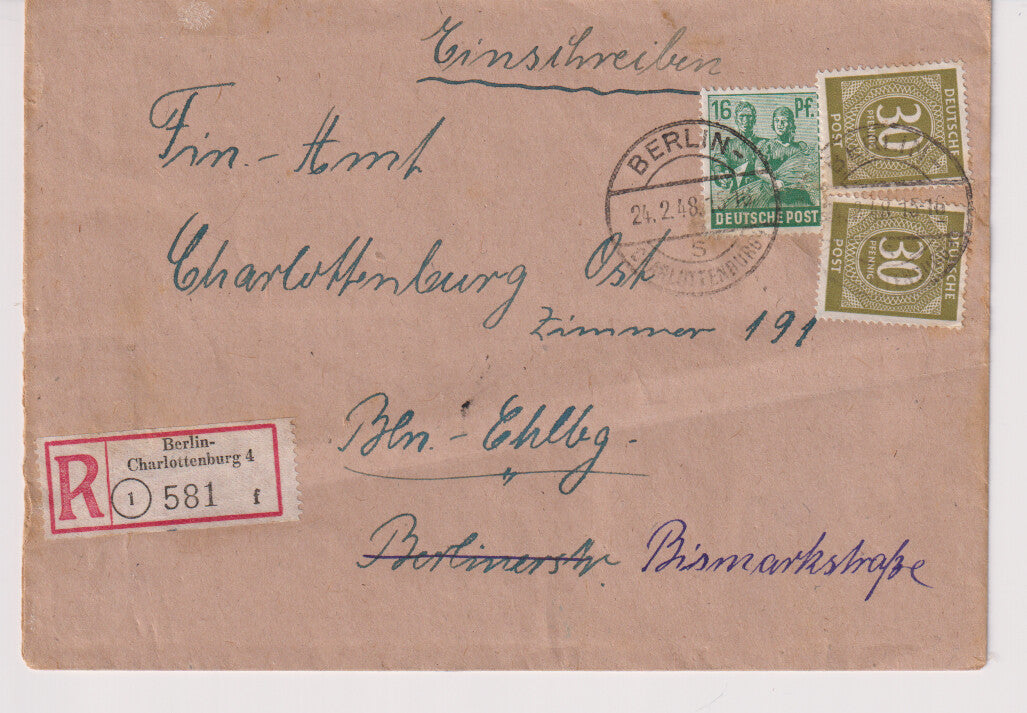 Einschreiben
16 Pf.
DEUTSCHE POST
DEUTSCHE
POST
30
PFENNIG
DEUTSCHE
POST
30
PFENNIG
BERLIN-
24.2.48.
s
CHARLOTTENBURG
15-16
Fin.-Amt
Charlottenburg Ost
Zimmer 191
Bln-Chlbg.
Berlinerstr. Bismarkstraße
R
Berlin-
Charlottenburg 4
1 581 f